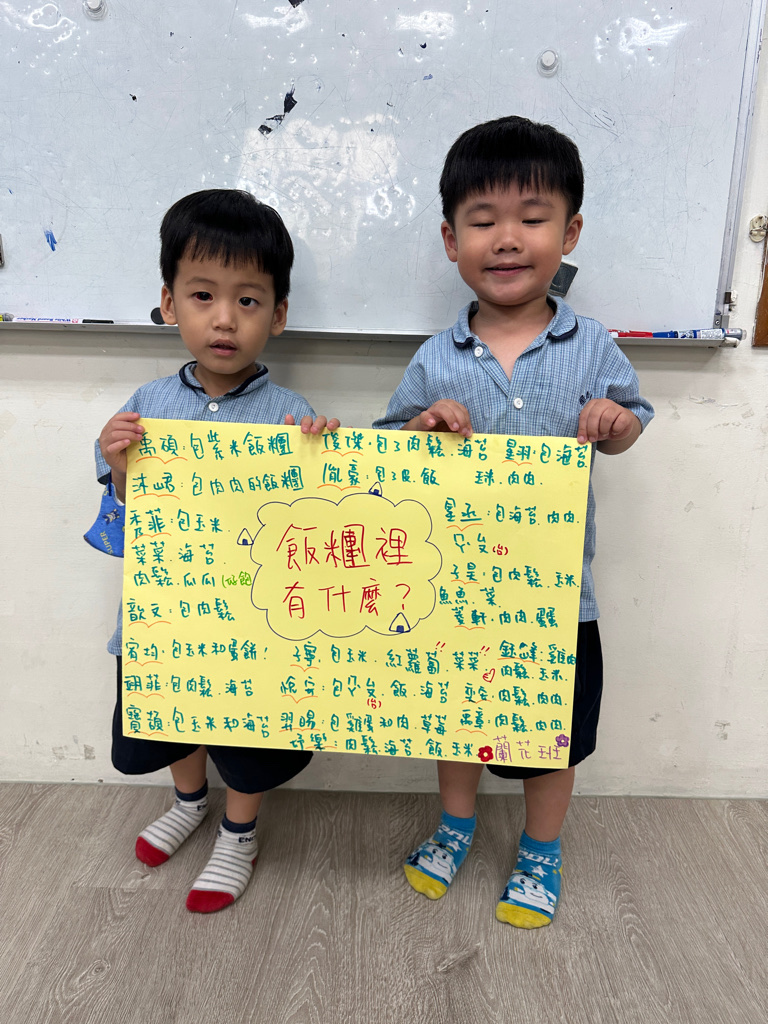 禹碩：包紫米飯糰
俊傑：包了肉鬆、海苔
星羽：包海苔
玉米、肉肉
沐峮：包肉肉的飯糰
胤豪：包了皮、飯
杏菲：包玉米、
菜菜、海苔
肉鬆、瓜瓜 (好飽
飯糰裡
有什麼？
星丞：包海苔、肉肉
ㄗㄆ(台)
子昊：包肉鬆、玉米
魚魚、菜
歆文：包肉鬆
肉肉、蛋蛋
宥均：包玉米和蛋餅！
子寧：包玉米、紅蘿蔔、菜菜
雞肉
肉鬆、玉米
翊菲：包肉鬆、海苔
飯、海苔
肉鬆、肉肉
寶頡：包玉米和海苔
羿暘：包雞蛋和肉、草莓
肉鬆、肉肉
肉鬆、海苔、飯、玉米
蘭花班
SUPER